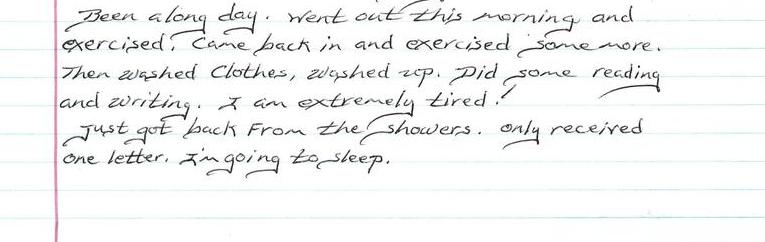 Been a long day. Went out this morning and
exercised. Came back in and exercised some more.
Then washed Clothes, washed up. Did some reading
and writing. I am extremely tired!
Just got back From the showers. only received
one letter. I'm going to sleep.